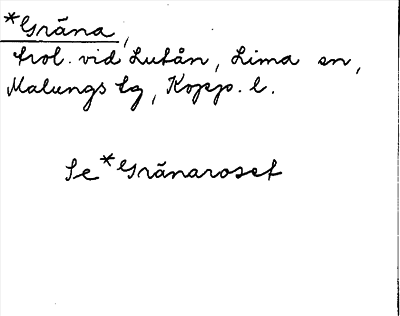 *Gräna,
trol. vid Lutån, Lima sn,
Malungs tg, Kopp. l.
Se *Gränaroset